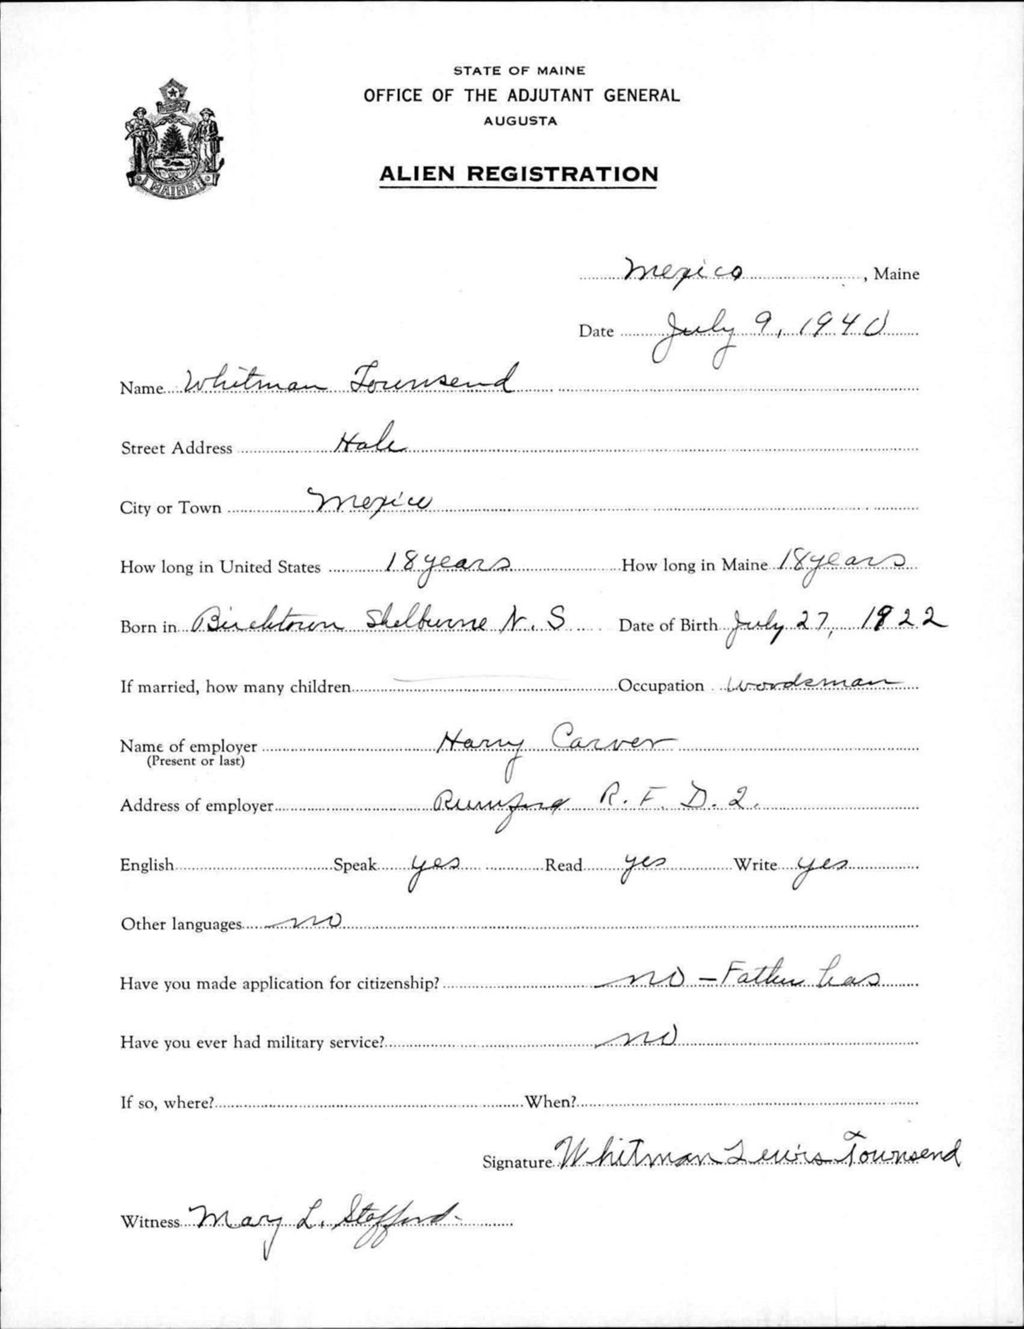 STATE OF MAINE
OFFICE OF THE ADJUTANT GENERAL
AUGUSTA
ALIEN REGISTRATION
MAINE
Mexico, Maine
Date July 9, 1940
Name Whitman Townsend
Street Address Hale
City or Town Mexico
How long in United States 18 years How long in Maine 18 years
Born in Birchtown Shelburne N. S Date of Birth July 27, 1922
If married, how many children — Occupation Woodsman
Name of employer Harry Carver
(Present or last)
Address of employer Rumford R. F. D. 2.
English Speak yes Read yes Write yes
Other languages no
Have you made application for citizenship? no – Father has
Have you ever had military service? no
If so, where? When?
Signature Whitman Lewis Townsend
Witness Mary L. Stafford